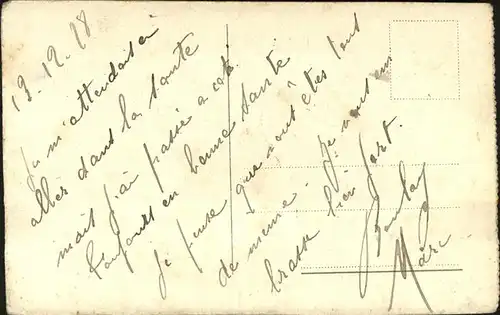 13.12.18
Je m'attendais à
aller dans la sante
mais j'ai passé à coté.
Toujours en bonne santé
je pense que vous êtes tous
de meme. Je vous em
brasse bien fort.
Marc